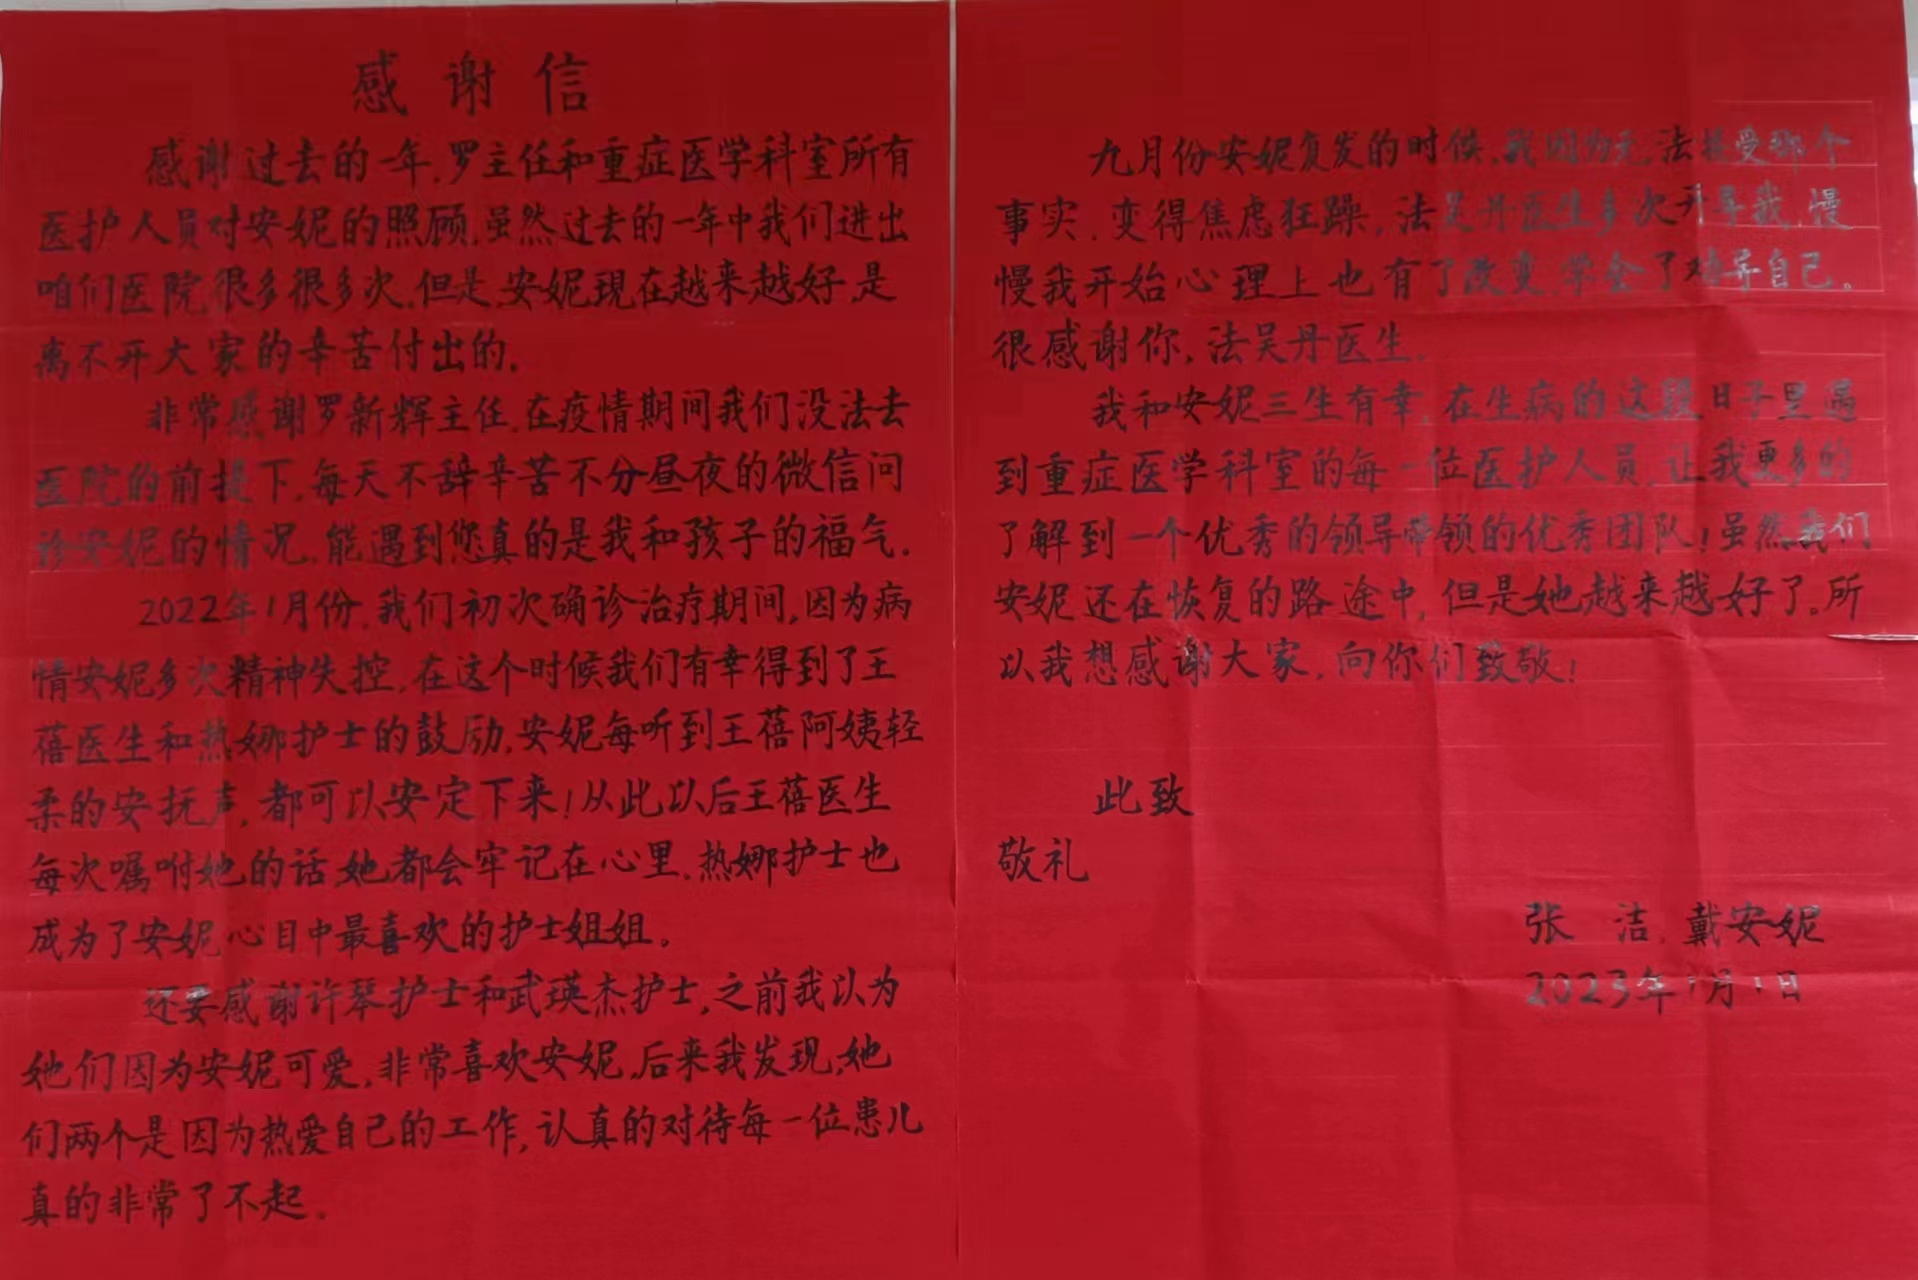 感谢信
感谢过去的一年,罗主任和重症医学科室所有
医护人员对安妮的照顾,虽然过去的一年中我们进出
咱们医院很多很多次,但是,安妮现在越来越好,是
离不开大家的辛苦付出的.
非常感谢罗新辉主任,在疫情期间我们没法去
医院的前提下,每天不辞辛苦不分昼夜的微信问
诊安妮的情况,能遇到您真的是我和孩子的福气.
2022年1月份,我们初次确诊治疗期间,因为病
情安妮多次精神失控,在这个时候我们有幸得到了王
蓓医生和热娜护士的鼓励,安妮每听到王蓓阿姨轻
柔的安抚声,都可以安定下来!从此以后王蓓医生
每次嘱咐她的话,她都会牢记在心里,热娜护士也
成为了安妮心目中最喜欢的护士姐姐。
还要感谢许琴护士和武瑛杰护士,之前我以为
她们因为安妮可爱,非常喜欢安妮,后来我发现,她
们两个是因为热爱自己的工作,认真的对待每一位患儿
真的非常了不起.
九月份安妮复发的时候,我因为无法接受那个
事实,变得焦虑狂躁,法吴丹医生多次开导我,慢
慢我开始心理上也有了改变,学会了劝导自己。
很感谢你,法吴丹医生.
我和安妮三生有幸,在生病的这段日子里遇
到重症医学科室的每一位医护人员,让我更多的
了解到一个优秀的领导带领的优秀团队!虽然我们
安妮还在恢复的路途中,但是她越来越好了。所
以我想感谢大家,向你们致敬!
此致
敬礼
张 洁,戴安妮
2023年1月1日